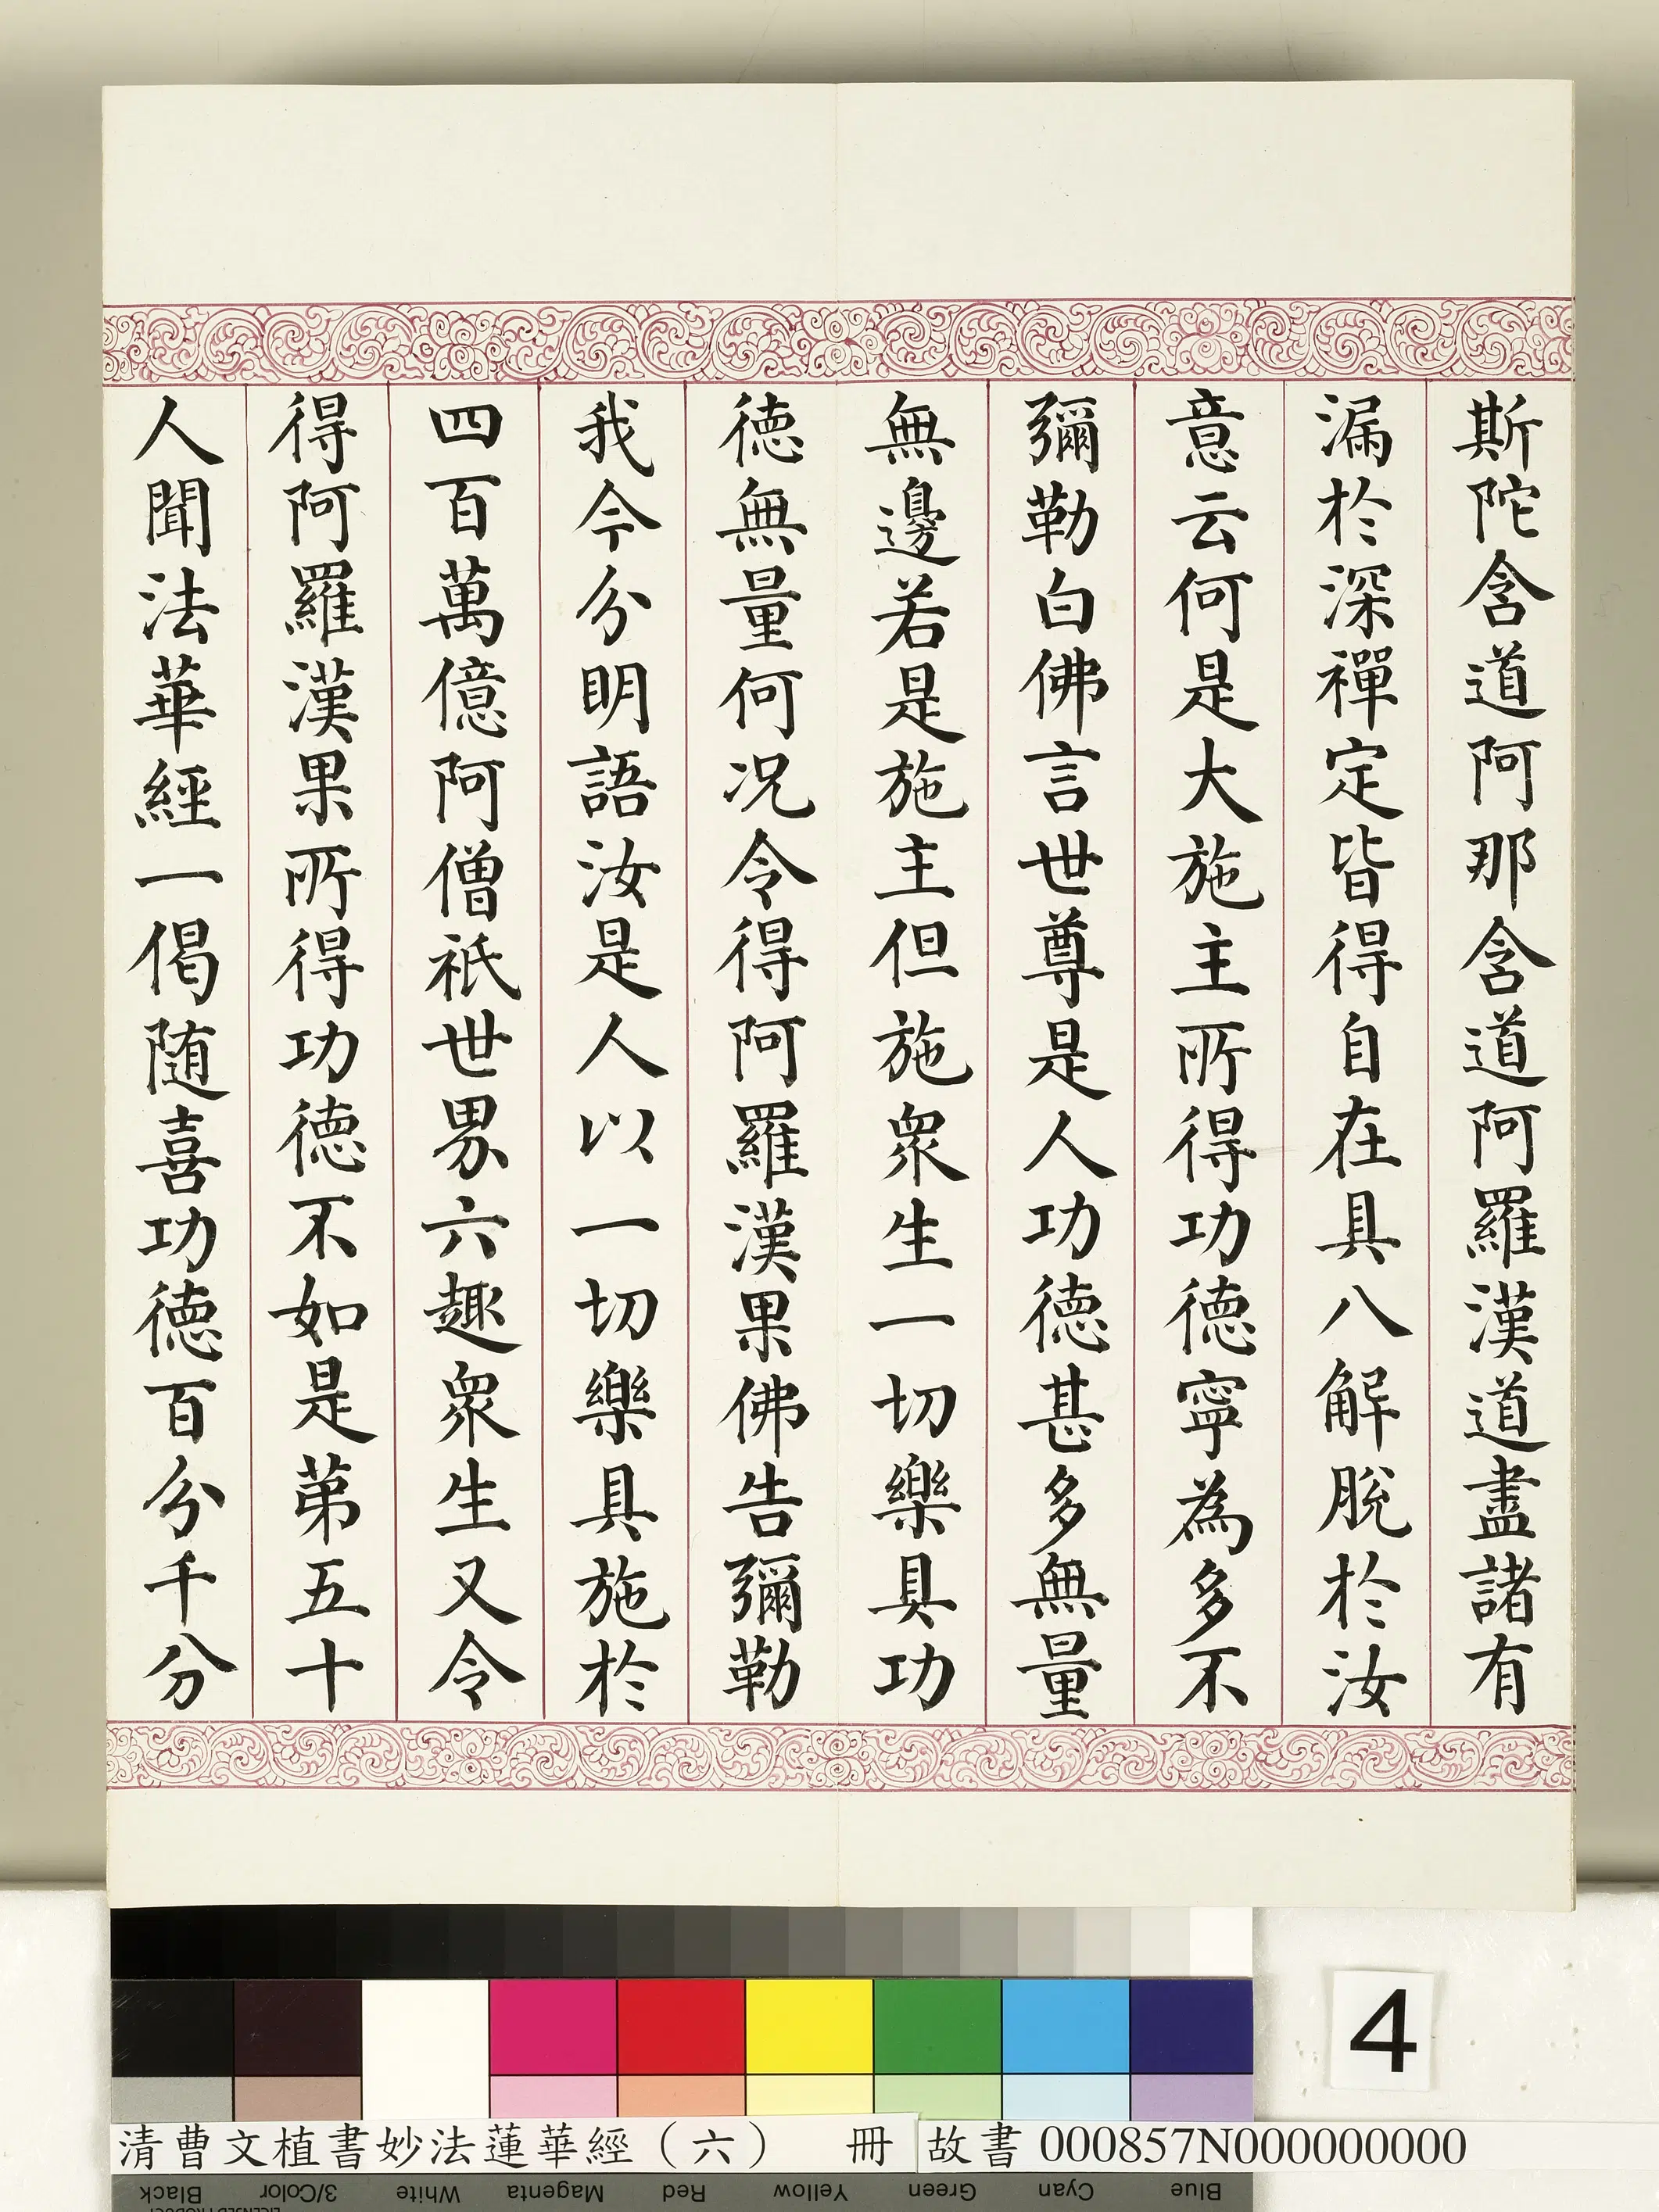 斯陀含道阿那含道阿羅漢道盡諸有
漏於深禪定皆得自在具八解脫於汝
意云何是大施主所得功德寧為多不
彌勒白佛言世尊是人功德甚多無量
無邊若是施主但施眾生一切樂具功
德無量何况令得阿羅漢果佛告彌勒
我今分明語汝是人以一切樂具施於
四百萬億阿僧祇世界六趣眾生又令
得阿羅漢果所得功德不如是第五十
人聞法華經一偈随喜功德百分千分
4
清曹文植書妙法蓮華經（六） 冊
故書 000857N000000000
Black 3/Color White Magenta Red Yellow Green Cyan Blue